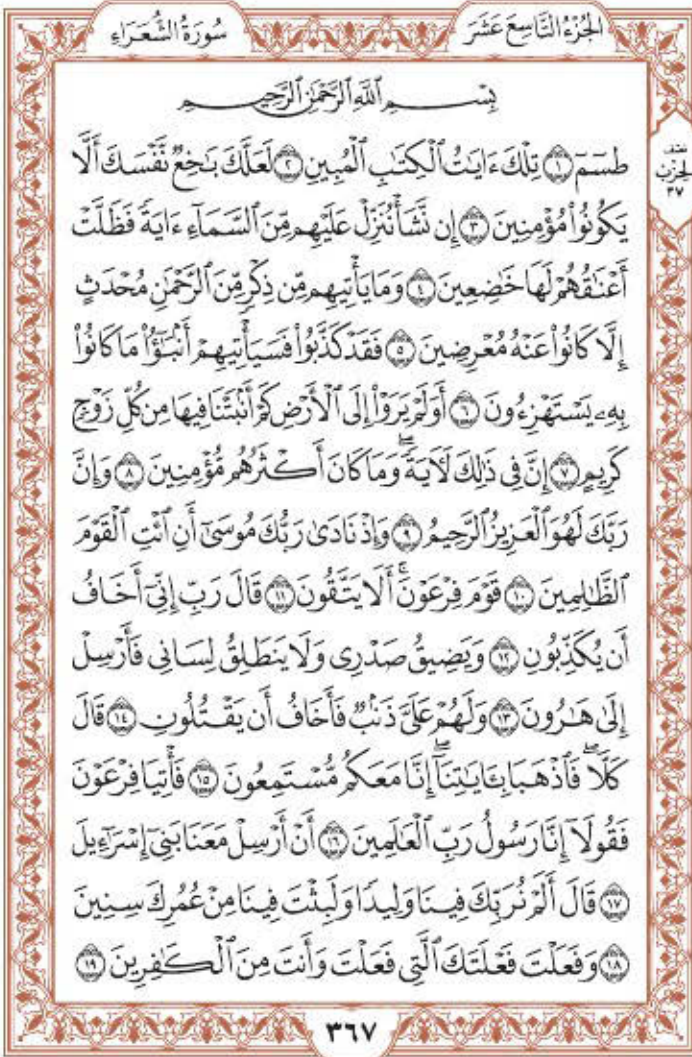 الجُزْءُ التَّاسِعَ عَشَرَ
سُورَةُ الشُّعَرَاءِ
بِسْمِ ٱللَّهِ ٱلرَّحْمَٰنِ ٱلرَّحِيمِ
طسٓمٓ ١ تِلۡكَ ءَايَٰتُ ٱلۡكِتَٰبِ ٱلۡمُبِينِ ٢ لَعَلَّكَ بَٰخِعٞ نَّفۡسَكَ أَلَّا
نصف
الحزب
٣٧
يَكُونُواْ مُؤۡمِنِينَ ٣ إِن نَّشَأۡ نُنَزِّلۡ عَلَيۡهِم مِّنَ ٱلسَّمَآءِ ءَايَةٗ فَظَلَّتۡ
أَعۡنَٰقُهُمۡ لَهَا خَٰضِعِينَ ٤ وَمَا يَأۡتِيهِم مِّن ذِكۡرٖ مِّنَ ٱلرَّحۡمَٰنِ مُحۡدَثٍ
إِلَّا كَانُواْ عَنۡهُ مُعۡرِضِينَ ٥ فَقَدۡ كَذَّبُواْ فَسَيَأۡتِيهِمۡ أَنۢبَٰٓؤُاْ مَا كَانُواْ
بِهِۦ يَسۡتَهۡزِءُونَ ٦ أَوَلَمۡ يَرَوۡاْ إِلَى ٱلۡأَرۡضِ كَمۡ أَنۢبَتۡنَا فِيهَا مِن كُلِّ زَوۡجٖ
كَرِيمٍ ٧ إِنَّ فِي ذَٰلِكَ لَأٓيَةٗۖ وَمَا كَانَ أَكۡثَرُهُم مُّؤۡمِنِينَ ٨ وَإِنَّ
رَبَّكَ لَهُوَ ٱلۡعَزِيزُ ٱلرَّحِيمُ ٩ وَإِذۡ نَادَىٰ رَبُّكَ مُوسَىٰٓ أَنِ ٱئۡتِ ٱلۡقَوۡمَ
ٱلظَّٰلِمِينَ ١٠ قَوۡمَ فِرۡعَوۡنَۚ أَلَا يَتَّقُونَ ١١ قَالَ رَبِّ إِنِّيٓ أَخَافُ
أَن يُكَذِّبُونِ ١٢ وَيَضِيقُ صَدۡرِي وَلَا يَنطَلِقُ لِسَانِي فَأَرۡسِلۡ
إِلَىٰ هَٰرُونَ ١٣ وَلَهُمۡ عَلَيَّ ذَنۢبٞ فَأَخَافُ أَن يَقۡتُلُونِ ١٤ قَالَ
كَلَّاۖ فَٱذۡهَبَا بِـَٔايَٰتِنَآۖ إِنَّا مَعَكُم مُّسۡتَمِعُونَ ١٥ فَأۡتِيَا فِرۡعَوۡنَ
فَقُولَآ إِنَّا رَسُولُ رَبِّ ٱلۡعَٰلَمِينَ ١٦ أَنۡ أَرۡسِلۡ مَعَنَا بَنِيٓ إِسۡرَٰٓءِيلَ
١٧ قَالَ أَلَمۡ نُرَبِّكَ فِينَا وَلِيدٗا وَلَبِثۡتَ فِينَا مِنۡ عُمُرِكَ سِنِينَ
١٨ وَفَعَلۡتَ فَعۡلَتَكَ ٱلَّتِي فَعَلۡتَ وَأَنتَ مِنَ ٱلۡكَٰفِرِينَ ١٩
٣٦٧